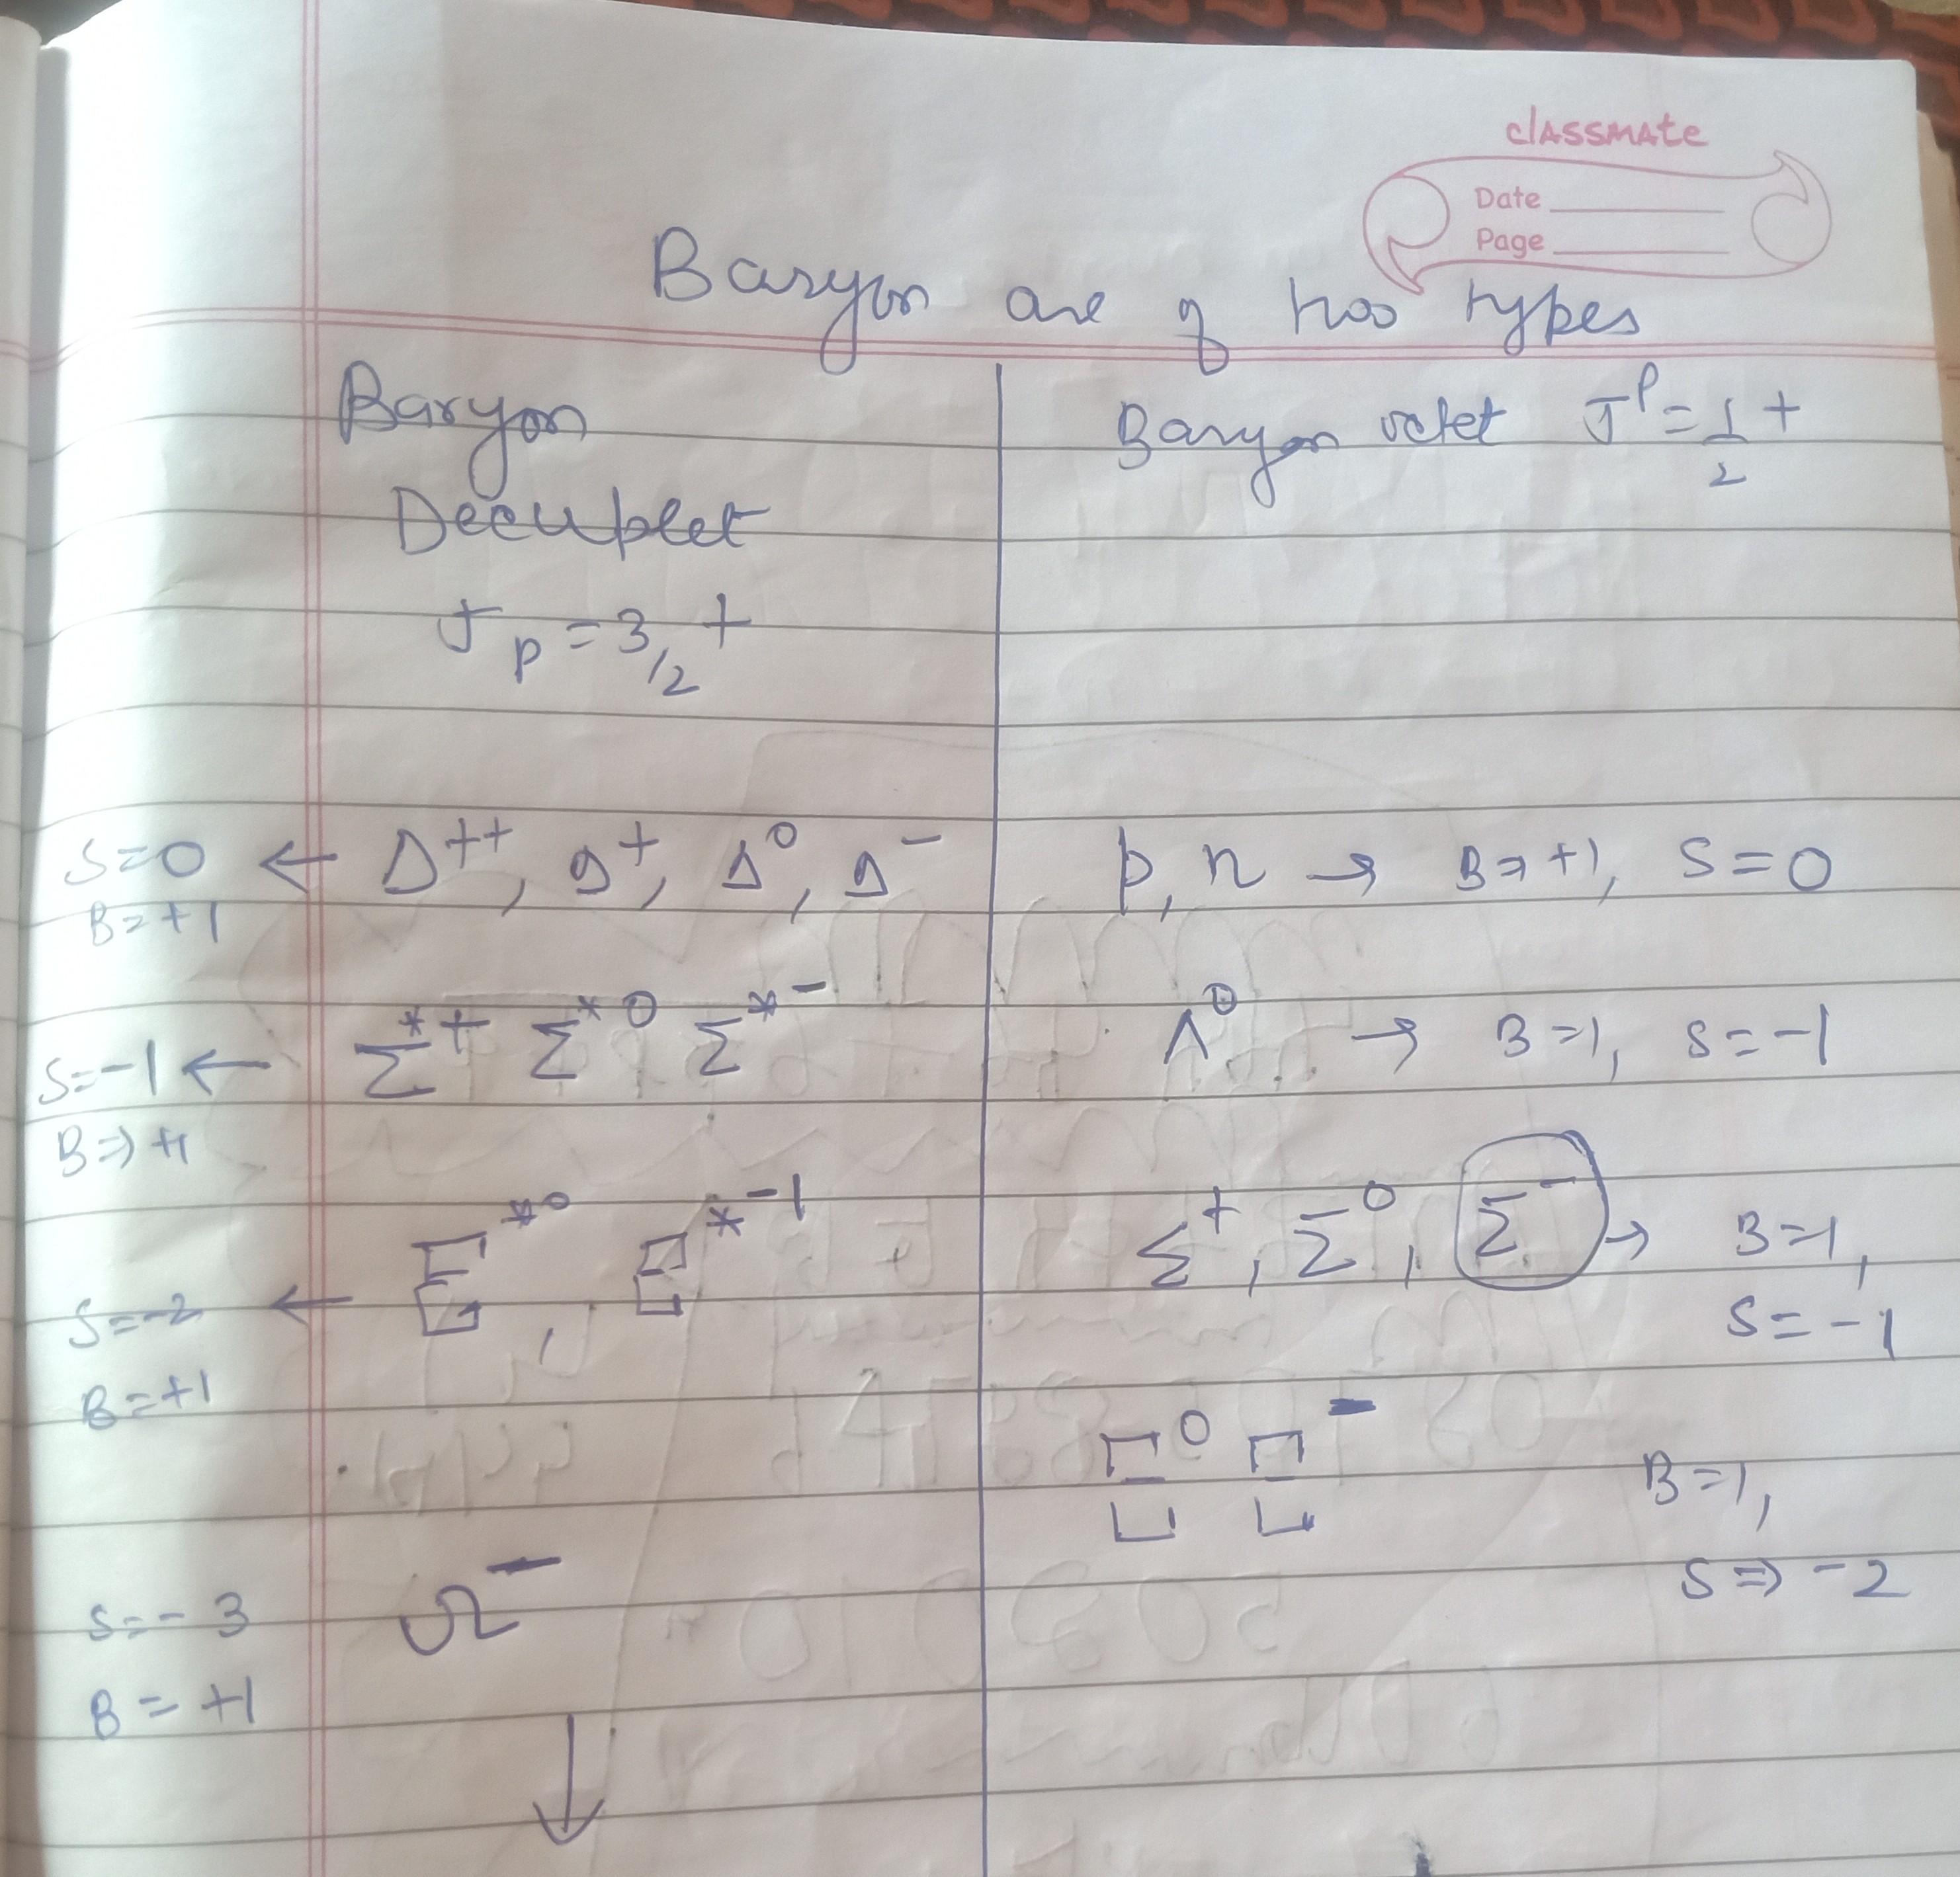 classmate
Date
Page
Baryon are of two types
Baryon
Decuplet
J p = 3/2 +
S=0 ← Δ++, Δ+, Δ0, Δ-
B=+1
S=-1 ← Σ*+ Σ*0 Σ*-
B=) +1
Ξ*0, Ξ*-1
S=-2 ←
B=+1
S=-3 Ω-
B=+1
↓
Baryon octet J^P = 1/2 +
p, n → B=+1, S=0
Λ0 → B=1, S=-1
Σ+, Σ0, Σ- → B=1,
S=-1
Ξ0 Ξ- B=1,
S => -2